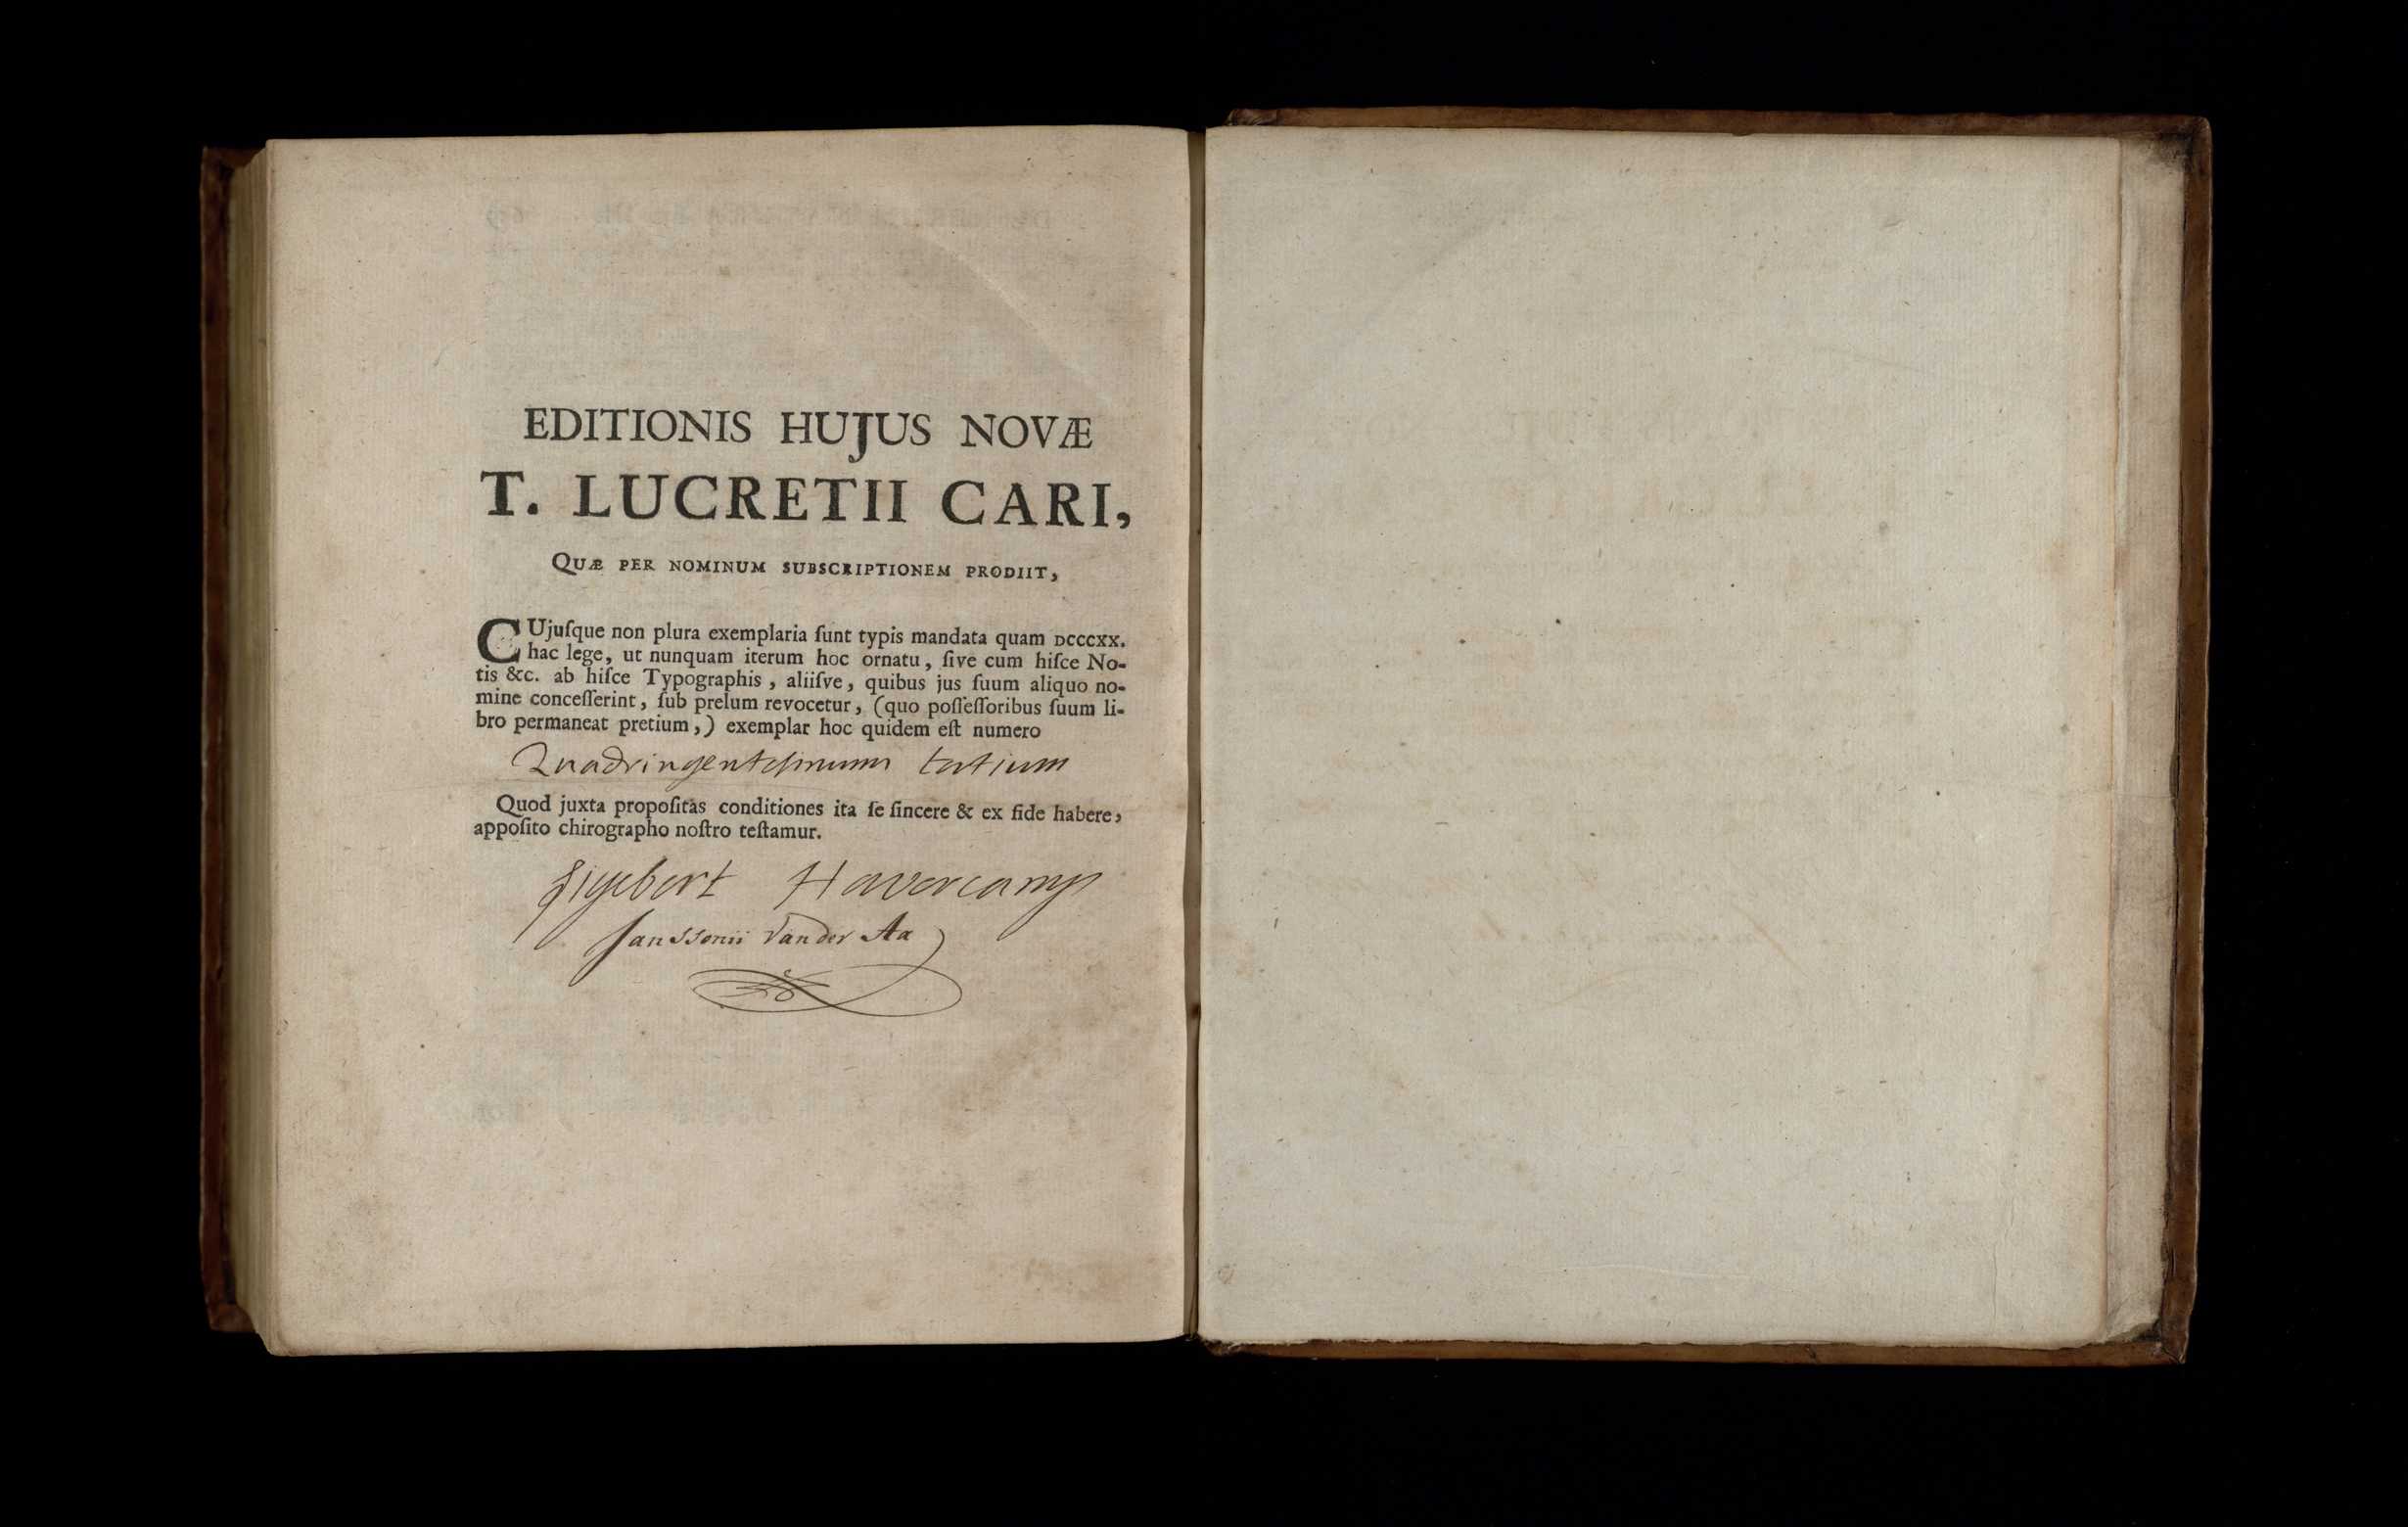 EDITIONIS HUJUS NOVÆ
T. LUCRETII CARI,
QUÆ PER NOMINUM SUBSCRIPTIONEM PRODIIT,
CUjuſque non plura exemplaria ſunt typis mandata quam DCCCXX.
hac lege, ut nunquam iterum hoc ornatu, ſive cum hiſce No-
tis &c. ab hiſce Typographis, aliiſve, quibus jus ſuum aliquo no-
mine conceſſerint, ſub prelum revocetur, (quo poſſeſſoribus ſuum li-
bro permaneat pretium,) exemplar hoc quidem eſt numero
Quadringentesimum tertium
Quod juxta propoſitas conditiones ita ſe ſincere & ex fide habere,
appoſito chirographo noſtro teſtamur.
Sigebert Havercamp
Janssonii Vander Aa